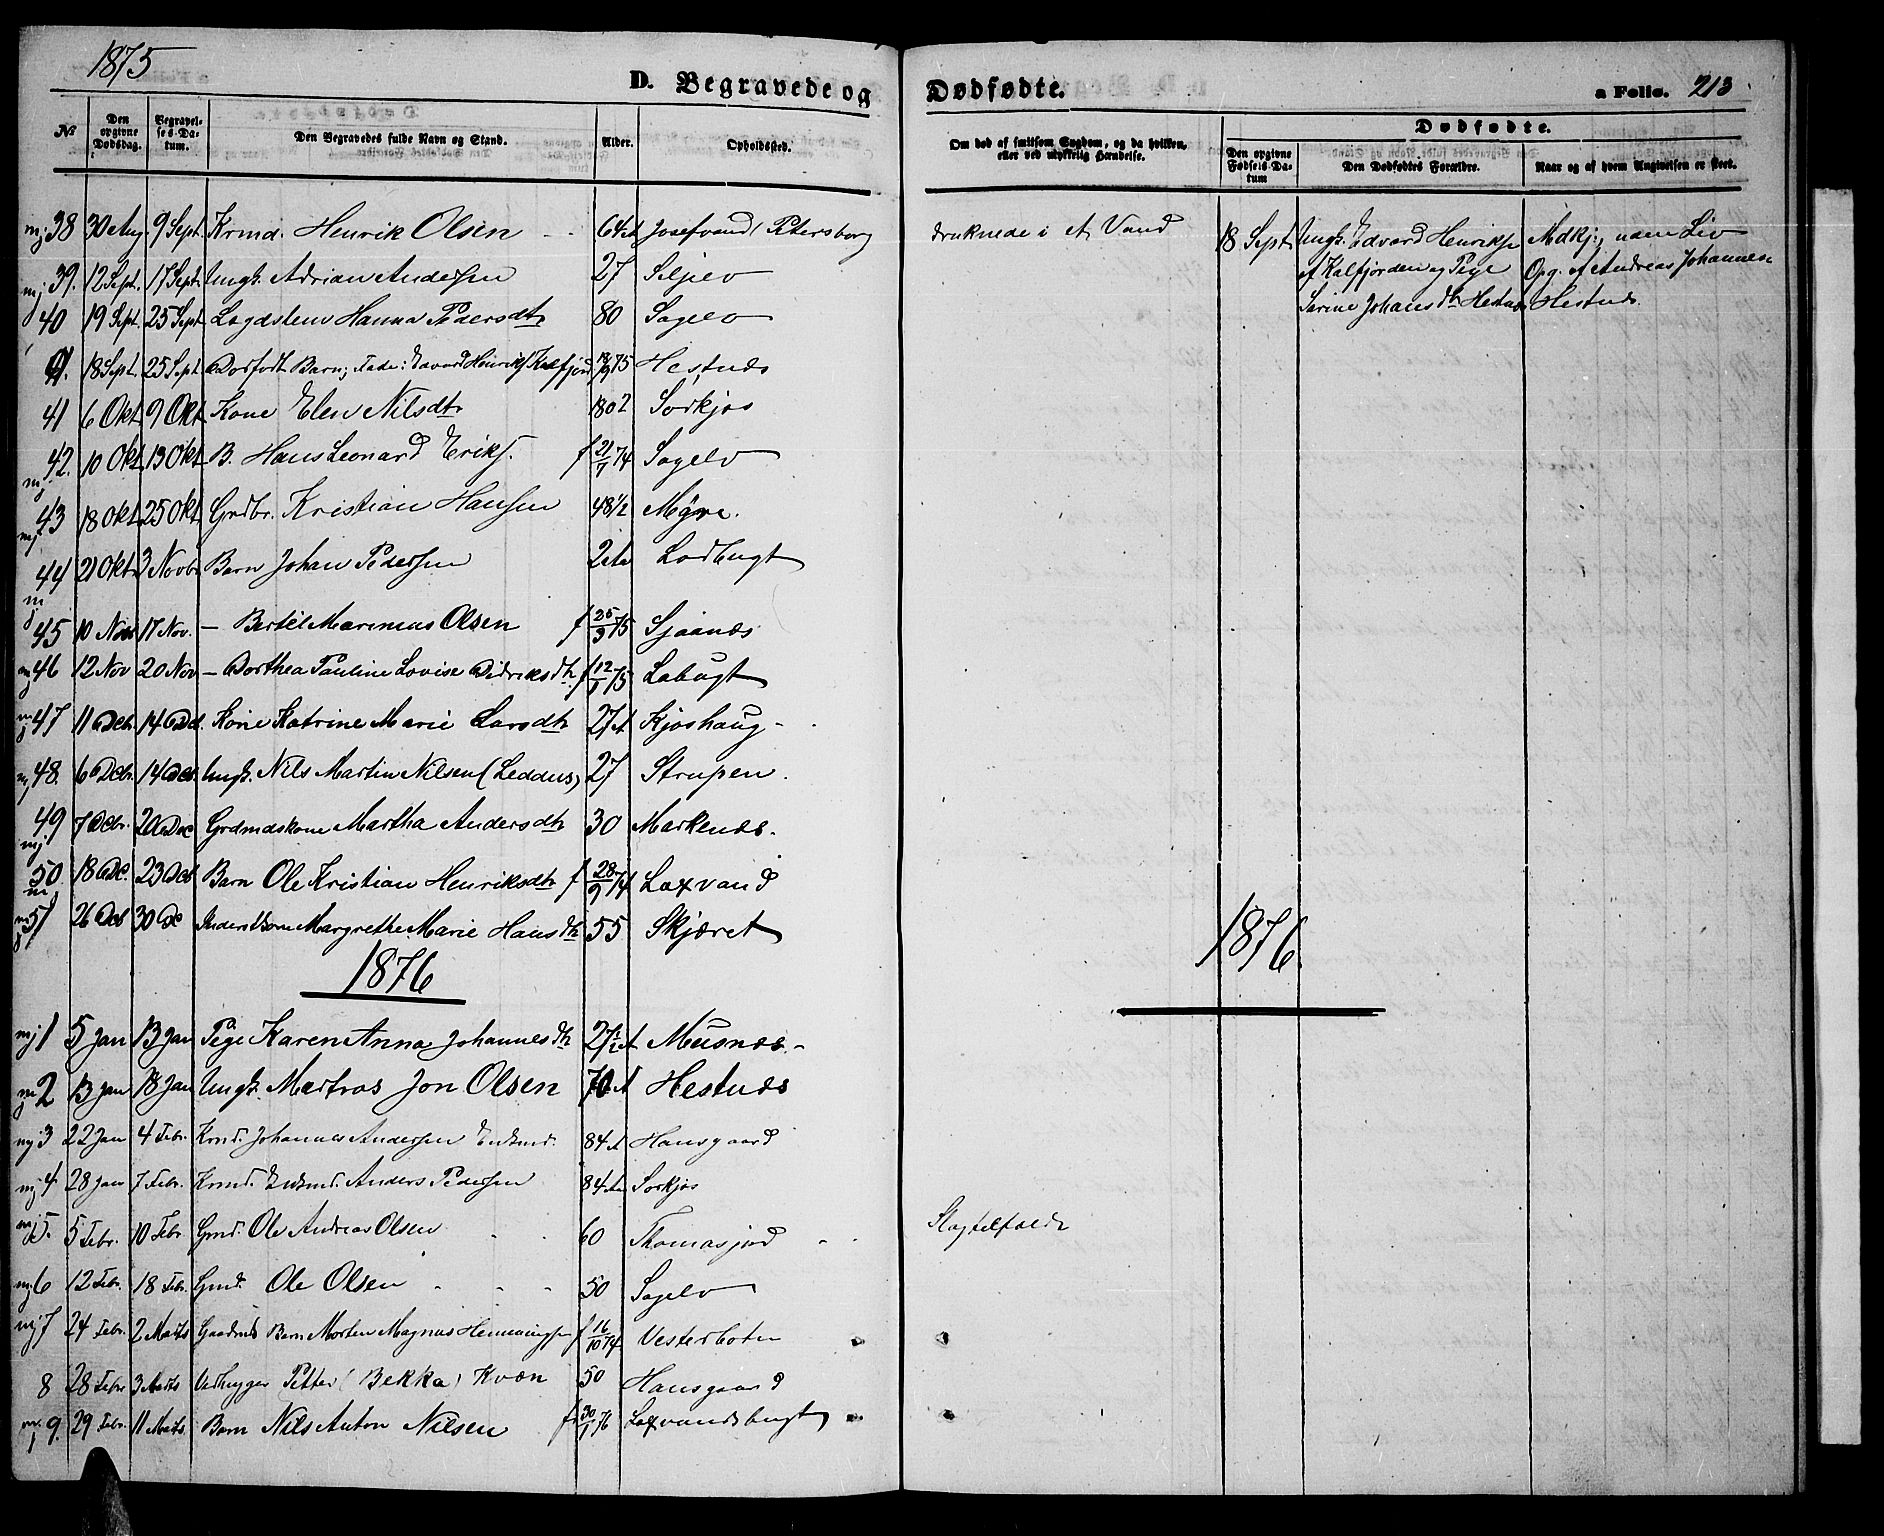 1875
D. Begravede og Dødfødte. a Folio. 213
No
Den opgivne Dødsdag.
Begravelses-Datum.
Den Begravedes fulde Navn og Stand.
Alder.
Opholdssted.
Om død af smitsom Sygdom, og da hvilken, eller ved ulykkelig Hændelse.
Dødfødte.
Den opgivne Fødsels-Datum
Den Dødfødtes Forældre.
Naar og af hvem Angivelsen er skeet.
38 30 Aug. 9 Sept. Krmd. Henrik Olsen 64 A Josefvand / Petersborg druknede i et Vand 18 Sept. Ungk. Edvard Henriks. Mdkj., uden Liv
39. 12 Sept. 17 Sept. Ungk. Adrian Andersen 27 Seljelv af Kalfjorden og Pige Opg. af Andreas Johannes.
40 19 Sept. 25 Sept. Lægdslem Hanna Pedersdtr 80 Sagelv Sarine Johansdtr Hestnæs Hestnæs.
18 Sept. 25 Sept. Dødfødt Barn; Fader: Edvard Henriks. Kalfjord 18/9 75 Hestnæs
41 6 Okt. 9 Okt. Kone Elen Nilsdtr 1802 Sørkjos
42. 10 Okt. 13 Okt. B. Hans Leonard Eriks. f 21/7 74 Sagelv
43 18 Okt. 25 Okt. Grdbr. Kristian Hansen 48 1/2 Myre.
44 21 Okt. 3 Novb. Barn Johan Pedersen 2 A Lodbugt
45 10 Nov 17 Nov. – Bertel Marenius Olsen f 25/9 75 Sjaanæs
46 12 Nov 20 Nov – Dorthea Pauline Lovise Didriksdtr. f 12/1 75 Labugt
47 11 Decb. 14 Dec. Kone Katrine Marie Larsdtr 27 A Kjoshaug –
48. 6 Decb. 14 Dec. Ungk. Nils Martin Nilsen (Leddus) 27 Strupen.
49 7 Decb. 20 Dec Grdmdskone Martha Andersdtr 30 Markenæs.
50. 18 Dec. 23 Dec Barn Ole Kristian Henriksdtr f 28/9 74 Laxvand
51 26 Dcb 30 Dc Margrethe Marie Hansdtr 55 Skjæret
1876
1876.
1 5 Jan 13 Jan Pige Karen Anna Johannesdtr 27 1/2 A Musnæs. –
2 13 Jan 18 Jan Ungk. Matros Jon Olsen 70 A Hestnæs
3 22 Jan 4 Febr. Krmd. Johannes Andersen Enkmd. 84 A Hansgaard
4 28 Jan 7 Febr. Krmd. Enkmd. Anders Pedersen 84 A Sørkjos
5. 5 Febr. 10 Febr. Grmd. Ole Andreas Olsen 60 Thomasjord Slagtilfælde
6 12 Febr. 18 Febr. Grmd. Ole Olsen 50 Sagelv
7 24 Febr. 2 Marts Gaardmds Barn Morten Magnus Henningsen f 16/10 74 Vesterbotn
8 28 Febr 3 Marts Petter (Bekka) Kvæn 50 Hansgaard
9. 29 Febr. 11 Marts. Barn Nils Anton Nilsen f. 30/1 76 Laxvandsbugt